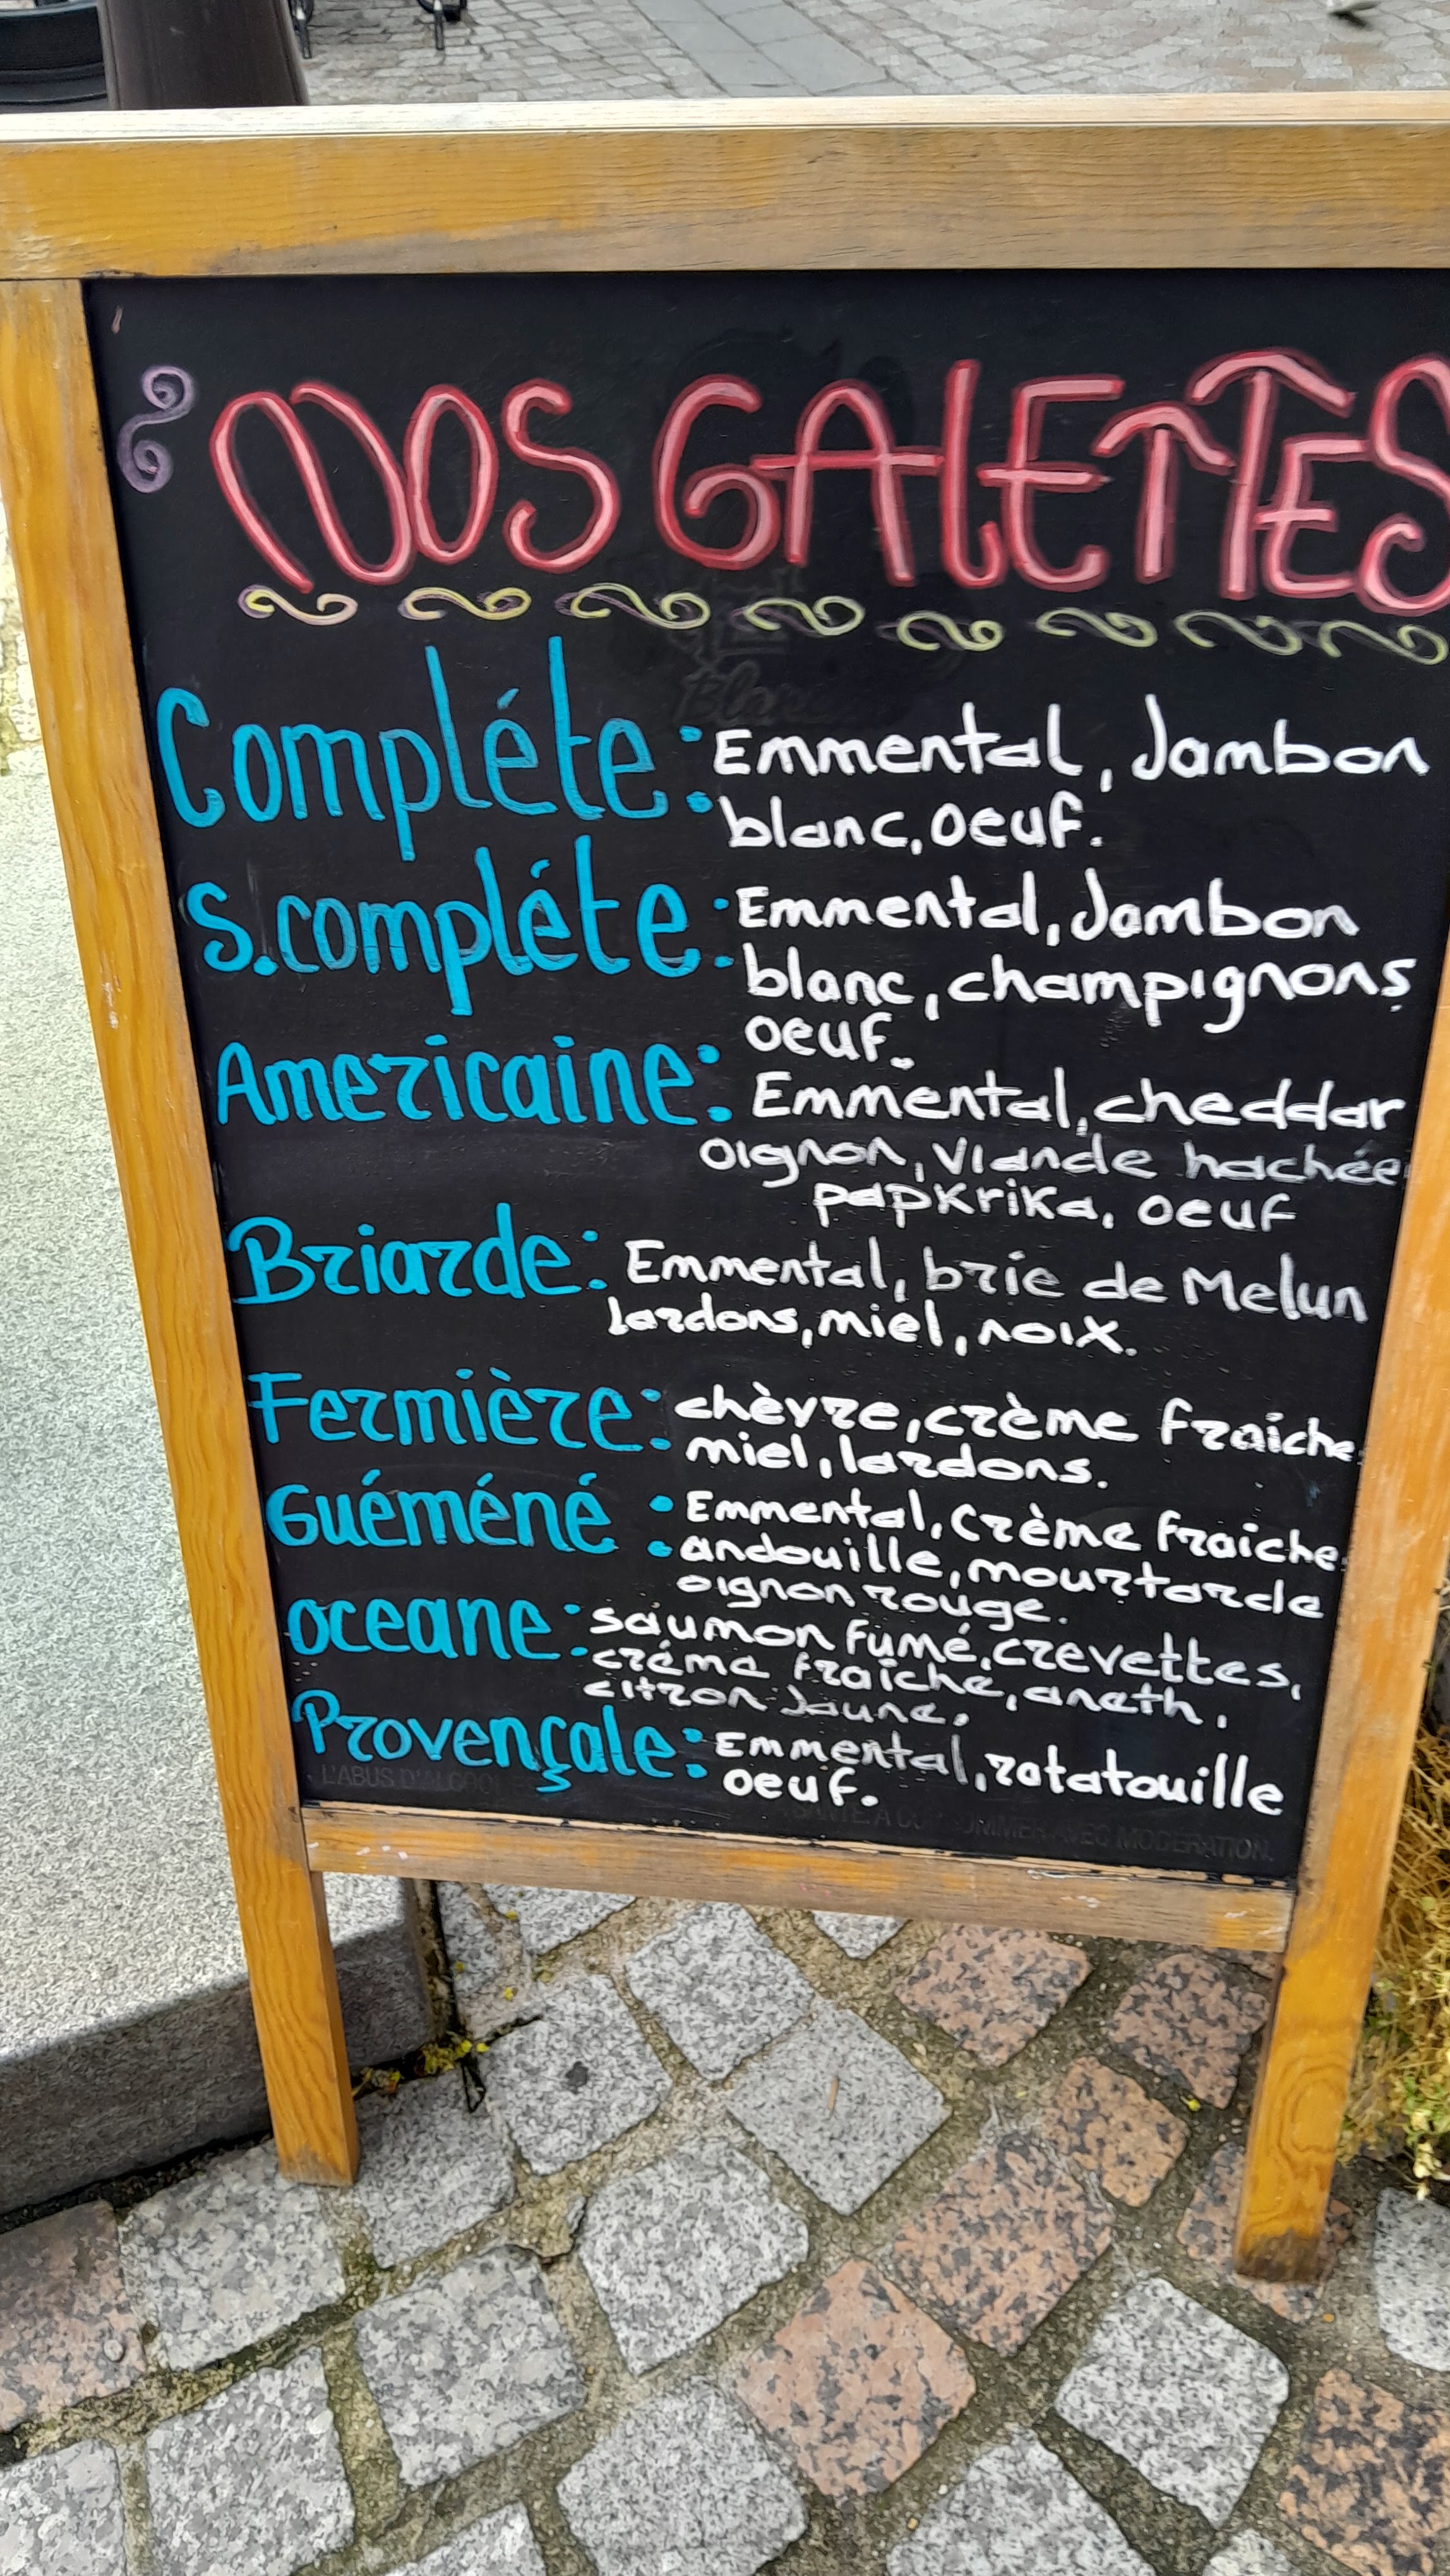 NOS GALETTES
Compléte: Emmental, Jambon
blanc, oeuf.
S.compléte: Emmental, Jambon
blanc, champignons
oeuf.
Americaine: Emmental, cheddar
oignon, viande hachée
papkrika, oeuf
Briarde: Emmental, brie de Melun
lardons, miel, noix.
Fermière: chèvre, crème fraîche,
miel, lardons.
Guéméné: Emmental, crème fraiche,
andouille, mourtarde
oignon rouge.
oceane: saumon fumé, crevettes,
créme fraîche, aneth,
citron jaune.
Provençale: Emmental, ratatouille
oeuf.
L'ABUS D'ALCOOL
SANTE. A CONSOMMER AVEC MODERATION.